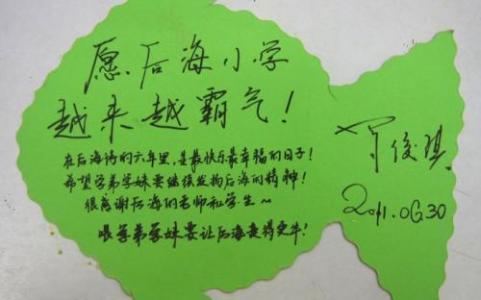 愿后海小学
越来越霸气！
在后海待的六年里，是最快乐最幸福的日子！
希望学弟学妹要继续发扬后海的精神！
很感谢后海的老师和学生～
学弟学妹要让后海变得更牛！
俊琪
2011.06.30